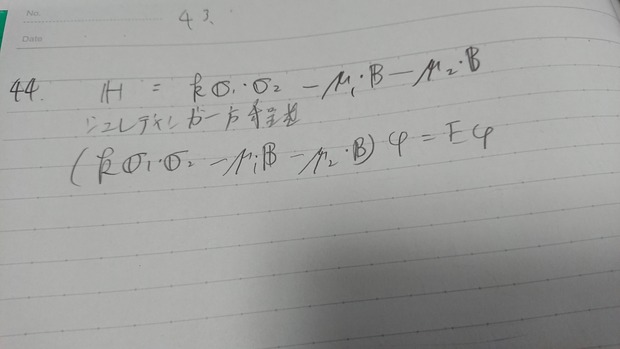 No.
43.
Date
44. H = k σ₁·σ₂ − μ₁·B − μ₂·B
シュレディンガー方程式
(k σ₁·σ₂ − μ₁B − μ₂·B) φ = Eφ